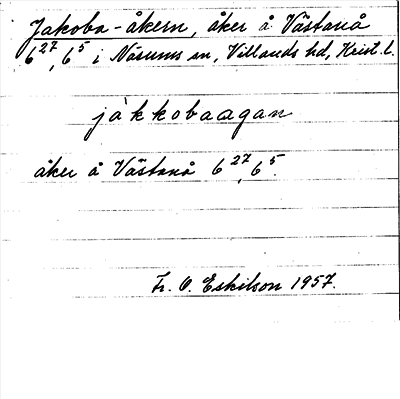 Jakobs-åkern, åker å Västanå
6²⁷, 6⁵ i Näsums sn, Villands hd, Krist. l.
jàkkobaagan
åker å Västanå 6²⁷, 6⁵.
Fr. O. Eskilson 1957.